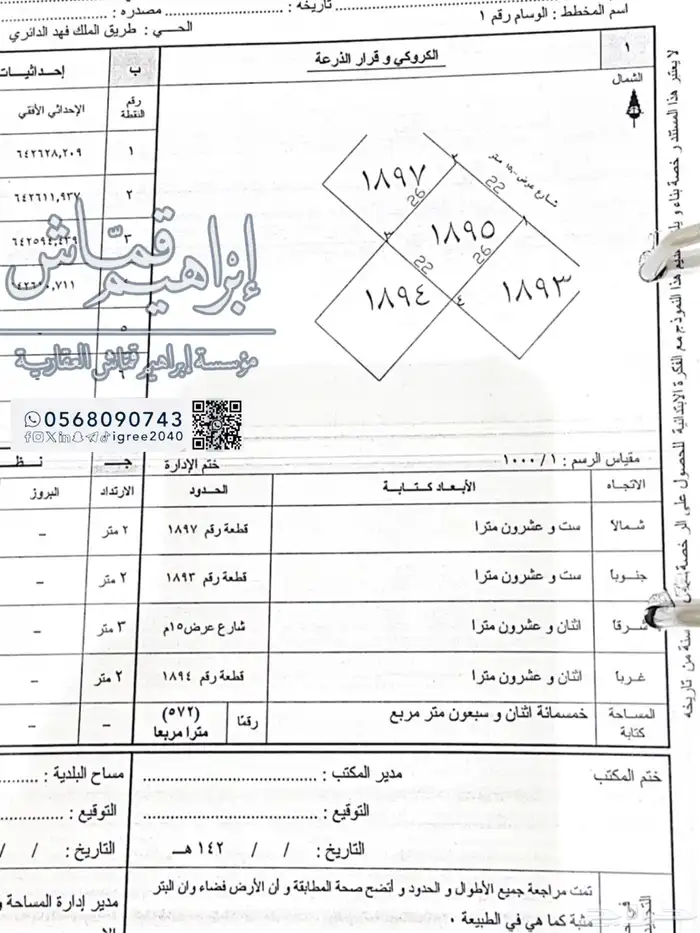 تاريخه : .................... مصدره :
اسم المخطط : الوسام رقم ١
الحـــي : طريق الملك فهد الدائري
١
الكروكي و قرار الذرعة
ب
إحداثيات
الشمال
رقم النقطة
الإحداثي الأفقي
١
٦٤٢٦٢٨,٢٠٩
٢
٦٤٢٦١١,٩٣٧
٣
٦٤٢٥٩٤,٤٣٩
٥
٦
شارع عرض ١٥ متر
١٨٩٧
١٨٩٥
١٨٩٤
١٨٩٣
22
26
22
26
٣
٤
إبراهيم قمّاش
مؤسسة إبراهيم قمّاش العقارية
0568090743
igree2040
مقياس الرسم : ١ / ١٠٠٠
ختم الإدارة
جـ
الاتجاه
الأبعاد كتابة
الحدود
الارتداد
البروز
شمالاً
ست و عشرون مترا
قطعة رقم ١٨٩٧
٢ متر
–
جنوباً
ست و عشرون مترا
قطعة رقم ١٨٩٣
٢ متر
–
شرقاً
اثنان و عشرون مترا
شارع عرض١٥م
٣ متر
–
غرباً
اثنان و عشرون مترا
قطعة رقم ١٨٩٤
٢ متر
–
المساحة كتابة
خمسمائة اثنان و سبعون متر مربع
رقمًا
(٥٧٢) مترا مربعا
–
–
ختم المكتب
مدير المكتب : ....................
مساح البلدية : ..........
التوقيع : ....................
التوقيع : ..........
التاريخ : / / ١٤٢ هـــ
التاريخ : / /
تمت مراجعة جميع الأطوال و الحدود و أتضح صحة المطابقة و أن الأرض فضاء وان البتر
مثبة كما هي في الطبيعة .
مدير إدارة المساحة و